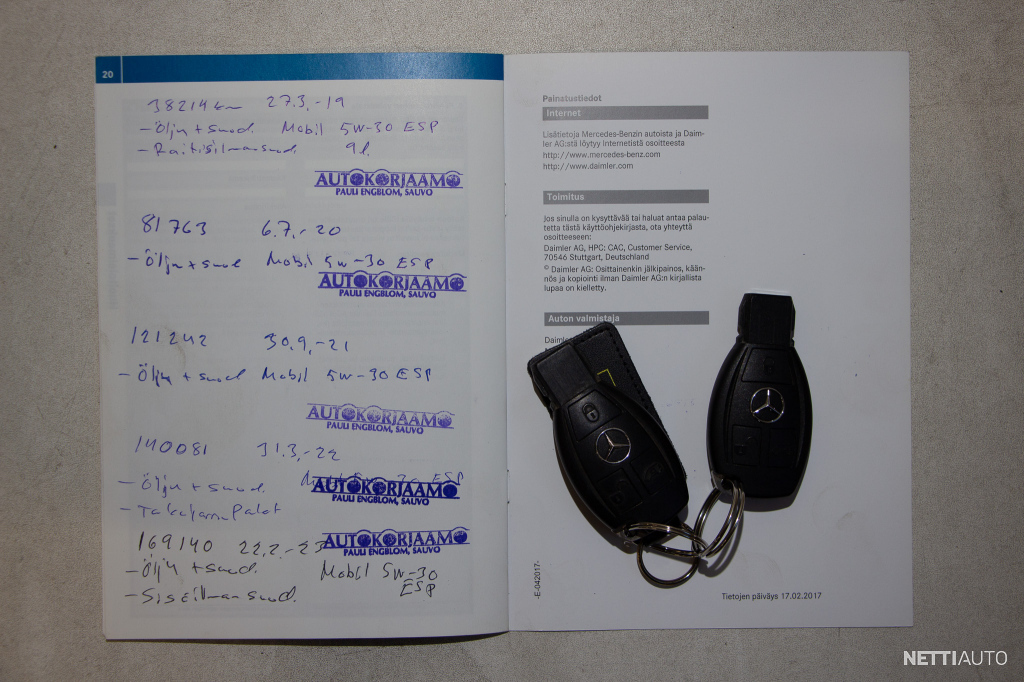 20
38214 km 27.3.-19
- Öljy + suod. Mobil 5W-30 ESP
- Raitisilmansuod. 9 l.
AUTOKORJAAMO
PAULI ENGBLOM, SAUVO
81763 6.7.-20
- Öljy + suod Mobil 5W-30 ESP
AUTOKORJAAMO
PAULI ENGBLOM, SAUVO
121242 30.9.-21
- Öljy + suod Mobil 5W-30 ESP
AUTOKORJAAMO
PAULI ENGBLOM, SAUVO
140081 31.3.-22
- Öljy + suod. Mobil 5W-30 ESP
AUTOKORJAAMO
PAULI ENGBLOM, SAUVO
- Takajarru Palat
169140 22.2.-23
AUTOKORJAAMO
PAULI ENGBLOM, SAUVO
- Öljy + suod. Mobil 5W-30
ESP
- Sisäilmansuod.
Painotustiedot
Internet
Lisätietoja Mercedes-Benzin autoista ja Daim-
ler AG:stä löytyy Internetistä osoitteesta
http://www.mercedes-benz.com
http://www.daimler.com
Toimitus
Jos sinulla on kysyttävää tai haluat antaa palau-
tetta tästä käyttöohjekirjasta, ota yhteyttä
osoitteeseen:
Daimler AG, HPC: CAC, Customer Service,
70546 Stuttgart, Deutschland
© Daimler AG: Osittainenkin jälkipainos, kään-
nös ja kopiointi ilman Daimler AG:n kirjallista
lupaa on kielletty.
Auton valmistaja
Daimler
-E-042017-
Tietojen päiväys 17.02.2017
NETTIAUTO